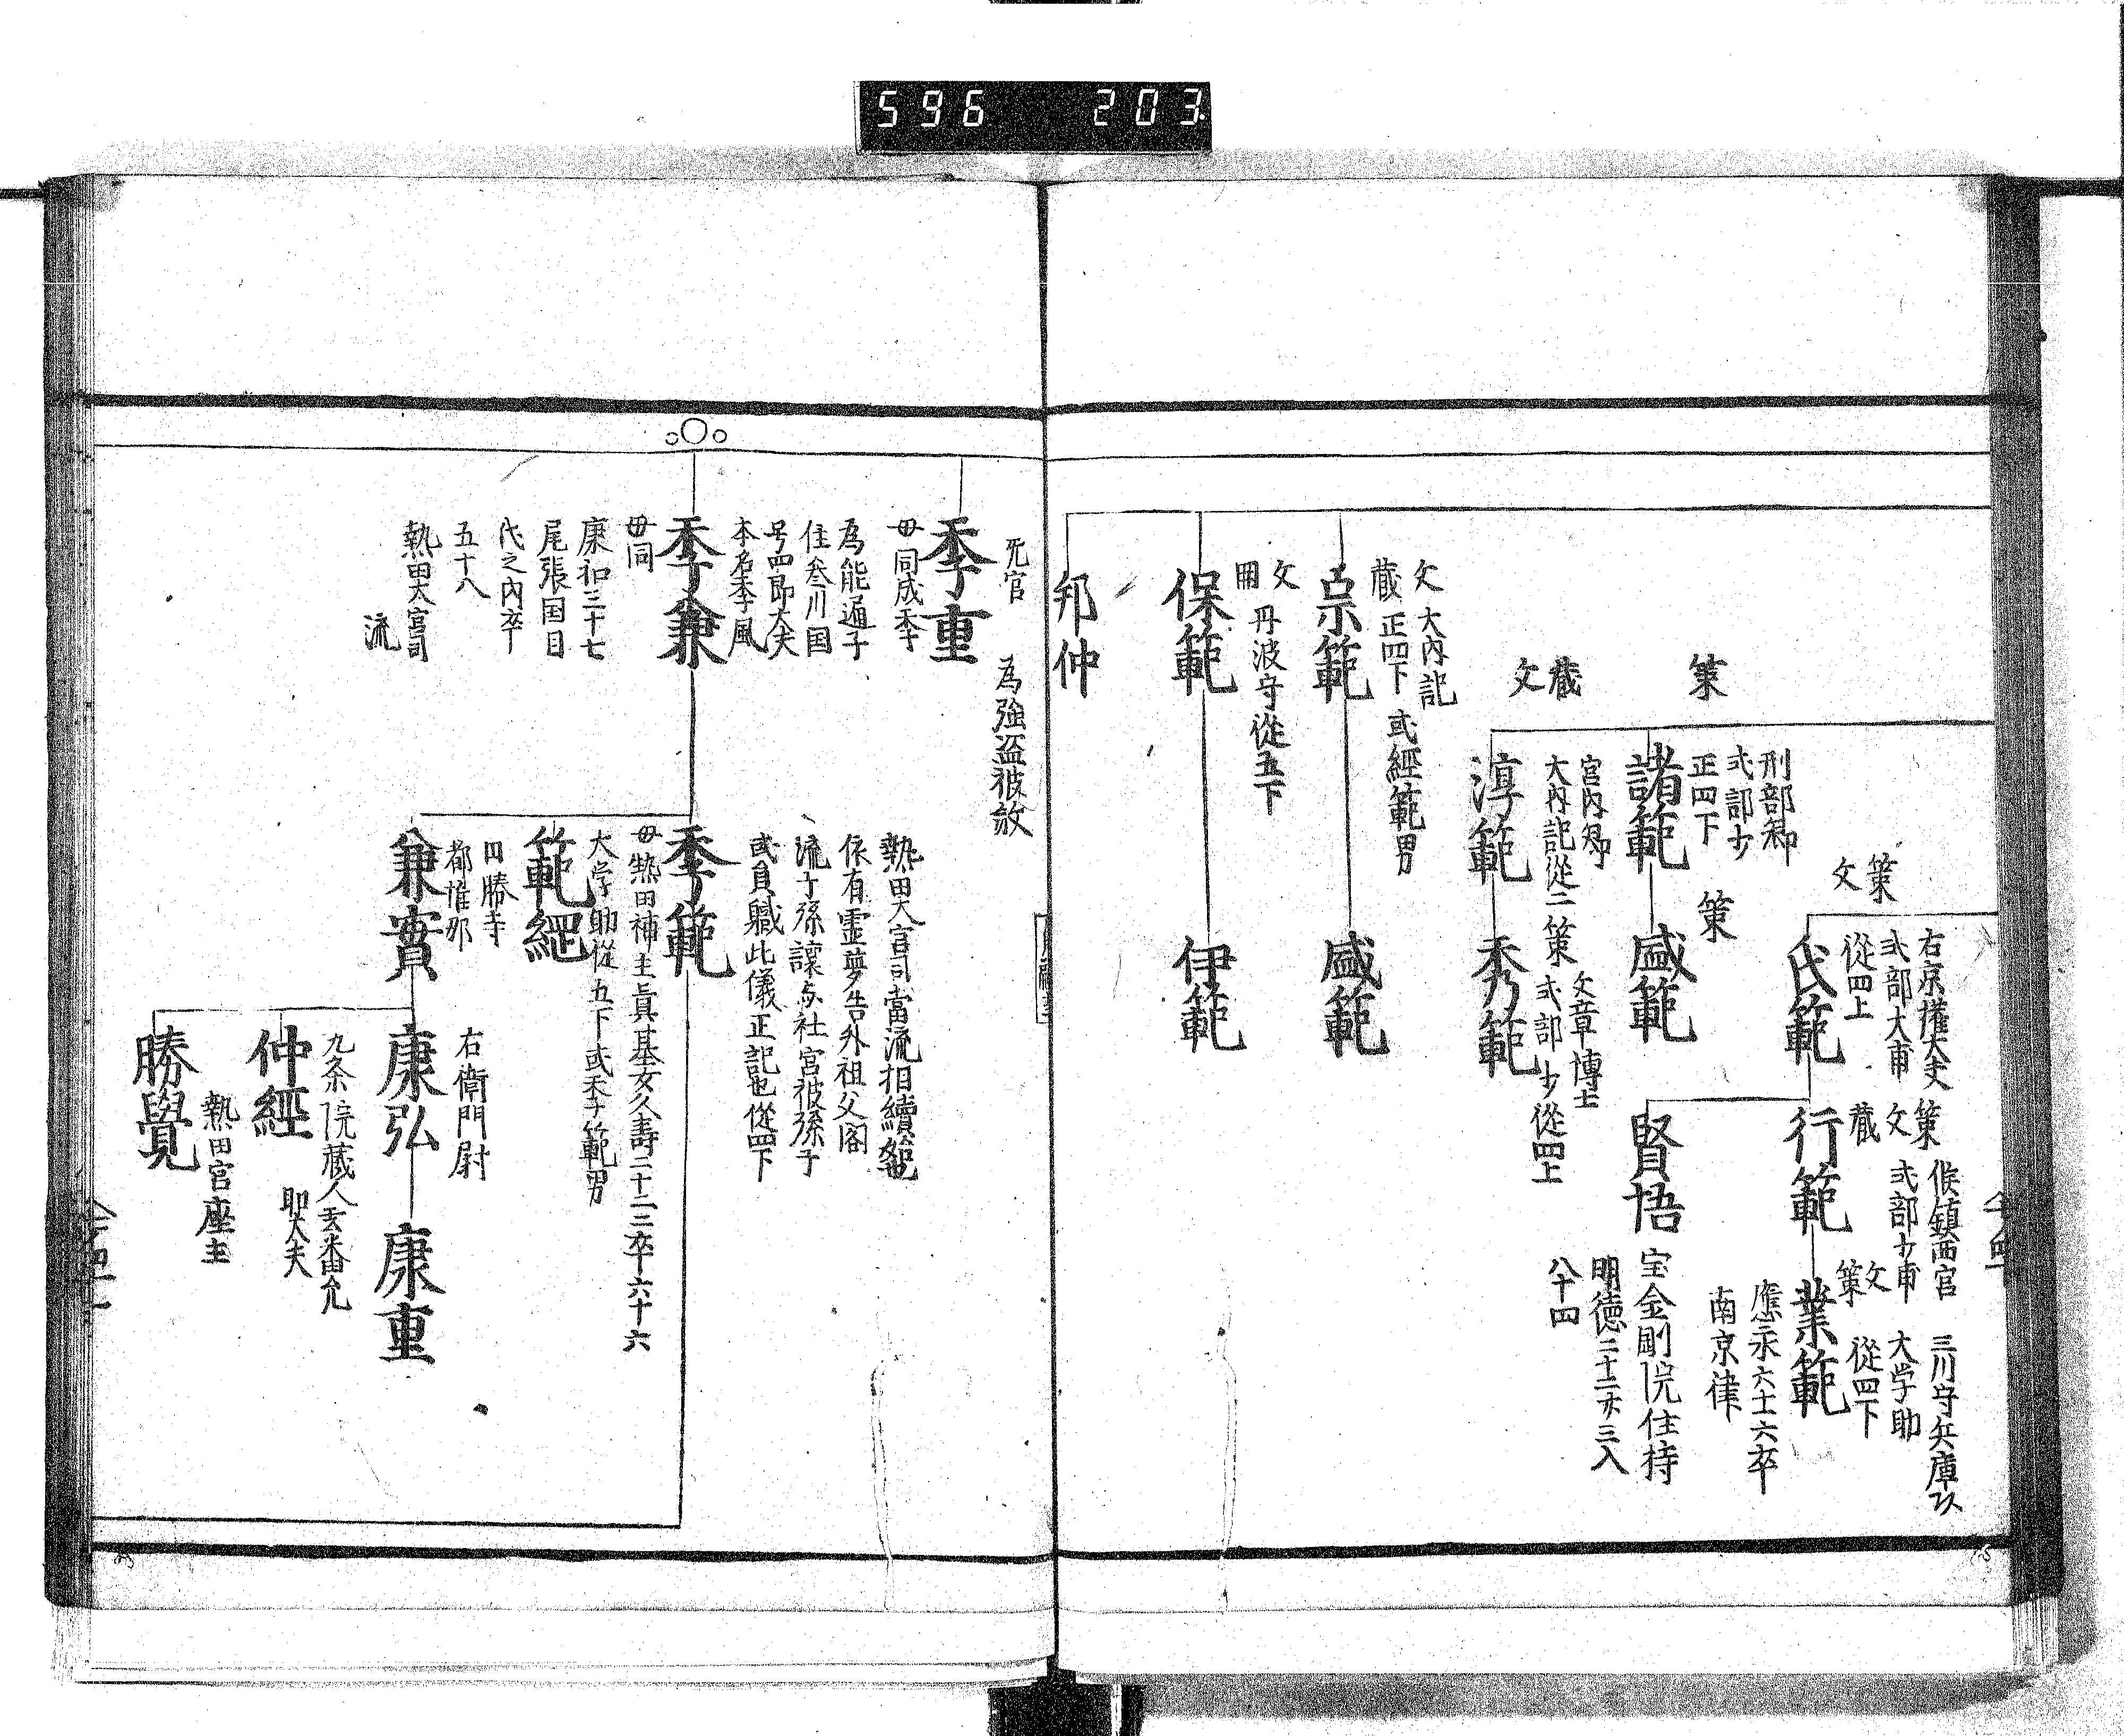 596 203
策
文
右京権大夫
式部大甫
従四上
氏範
策
文
蔵
候鎮西官
式部少甫
行範
文
策
三川守兵庫以
大学助
従四下
業範
應永六十六卒
南京律
賢悟
宝金剛院住持
明徳二十二
八十四
策
刑部卿
式部少
正四下
諸範
策
盛範
蔵
文
宮内卿
大内記従二
淳範
策
文章博士
式部少従四上
秀範
文
蔵
大内記
正四下 或経範男
宗範
盛範
文
丹波守従五下
保範
伊範
邦仲
死官
為強盗被敓
季重
母同成季
為能通子
住参川国
号四郎大夫
本名季風
季兼
母同
康和三十七
尾張国目
代之内卒
五十八
熱田大宮司
流
熱田大宮司當流相續
依有霊夢告外祖父閣
流子孫譲与社宮彼孫子
或員職此儀正記也従四下
季範
母熱田神主員基女久壽二十二三卒六十六
大学助従五下或季範男
範経
円勝寺
都惟那
兼實
右衛門尉
康弘
康重
九条院蔵人玄番允
仲経
熱田宮座主
勝覺